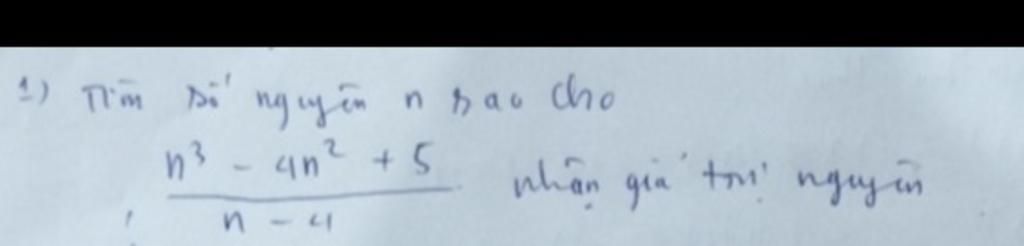 1) Tìm số nguyên n sao cho
n³ - 4n² + 5 / n - 4 nhận giá trị nguyên